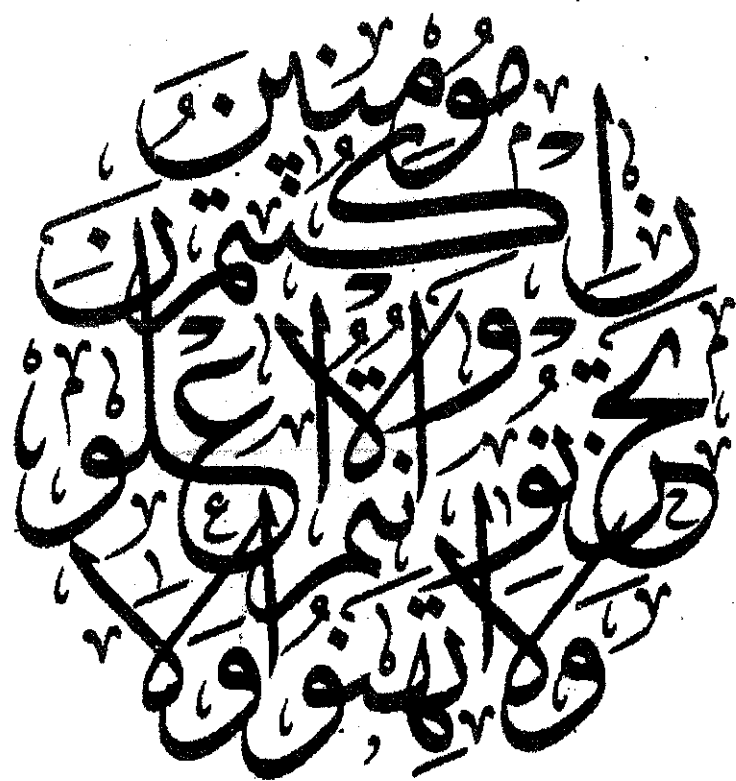 ولا تهنوا ولا
تحزنوا وانتم الاعلون
ان كنتم
مؤمنين